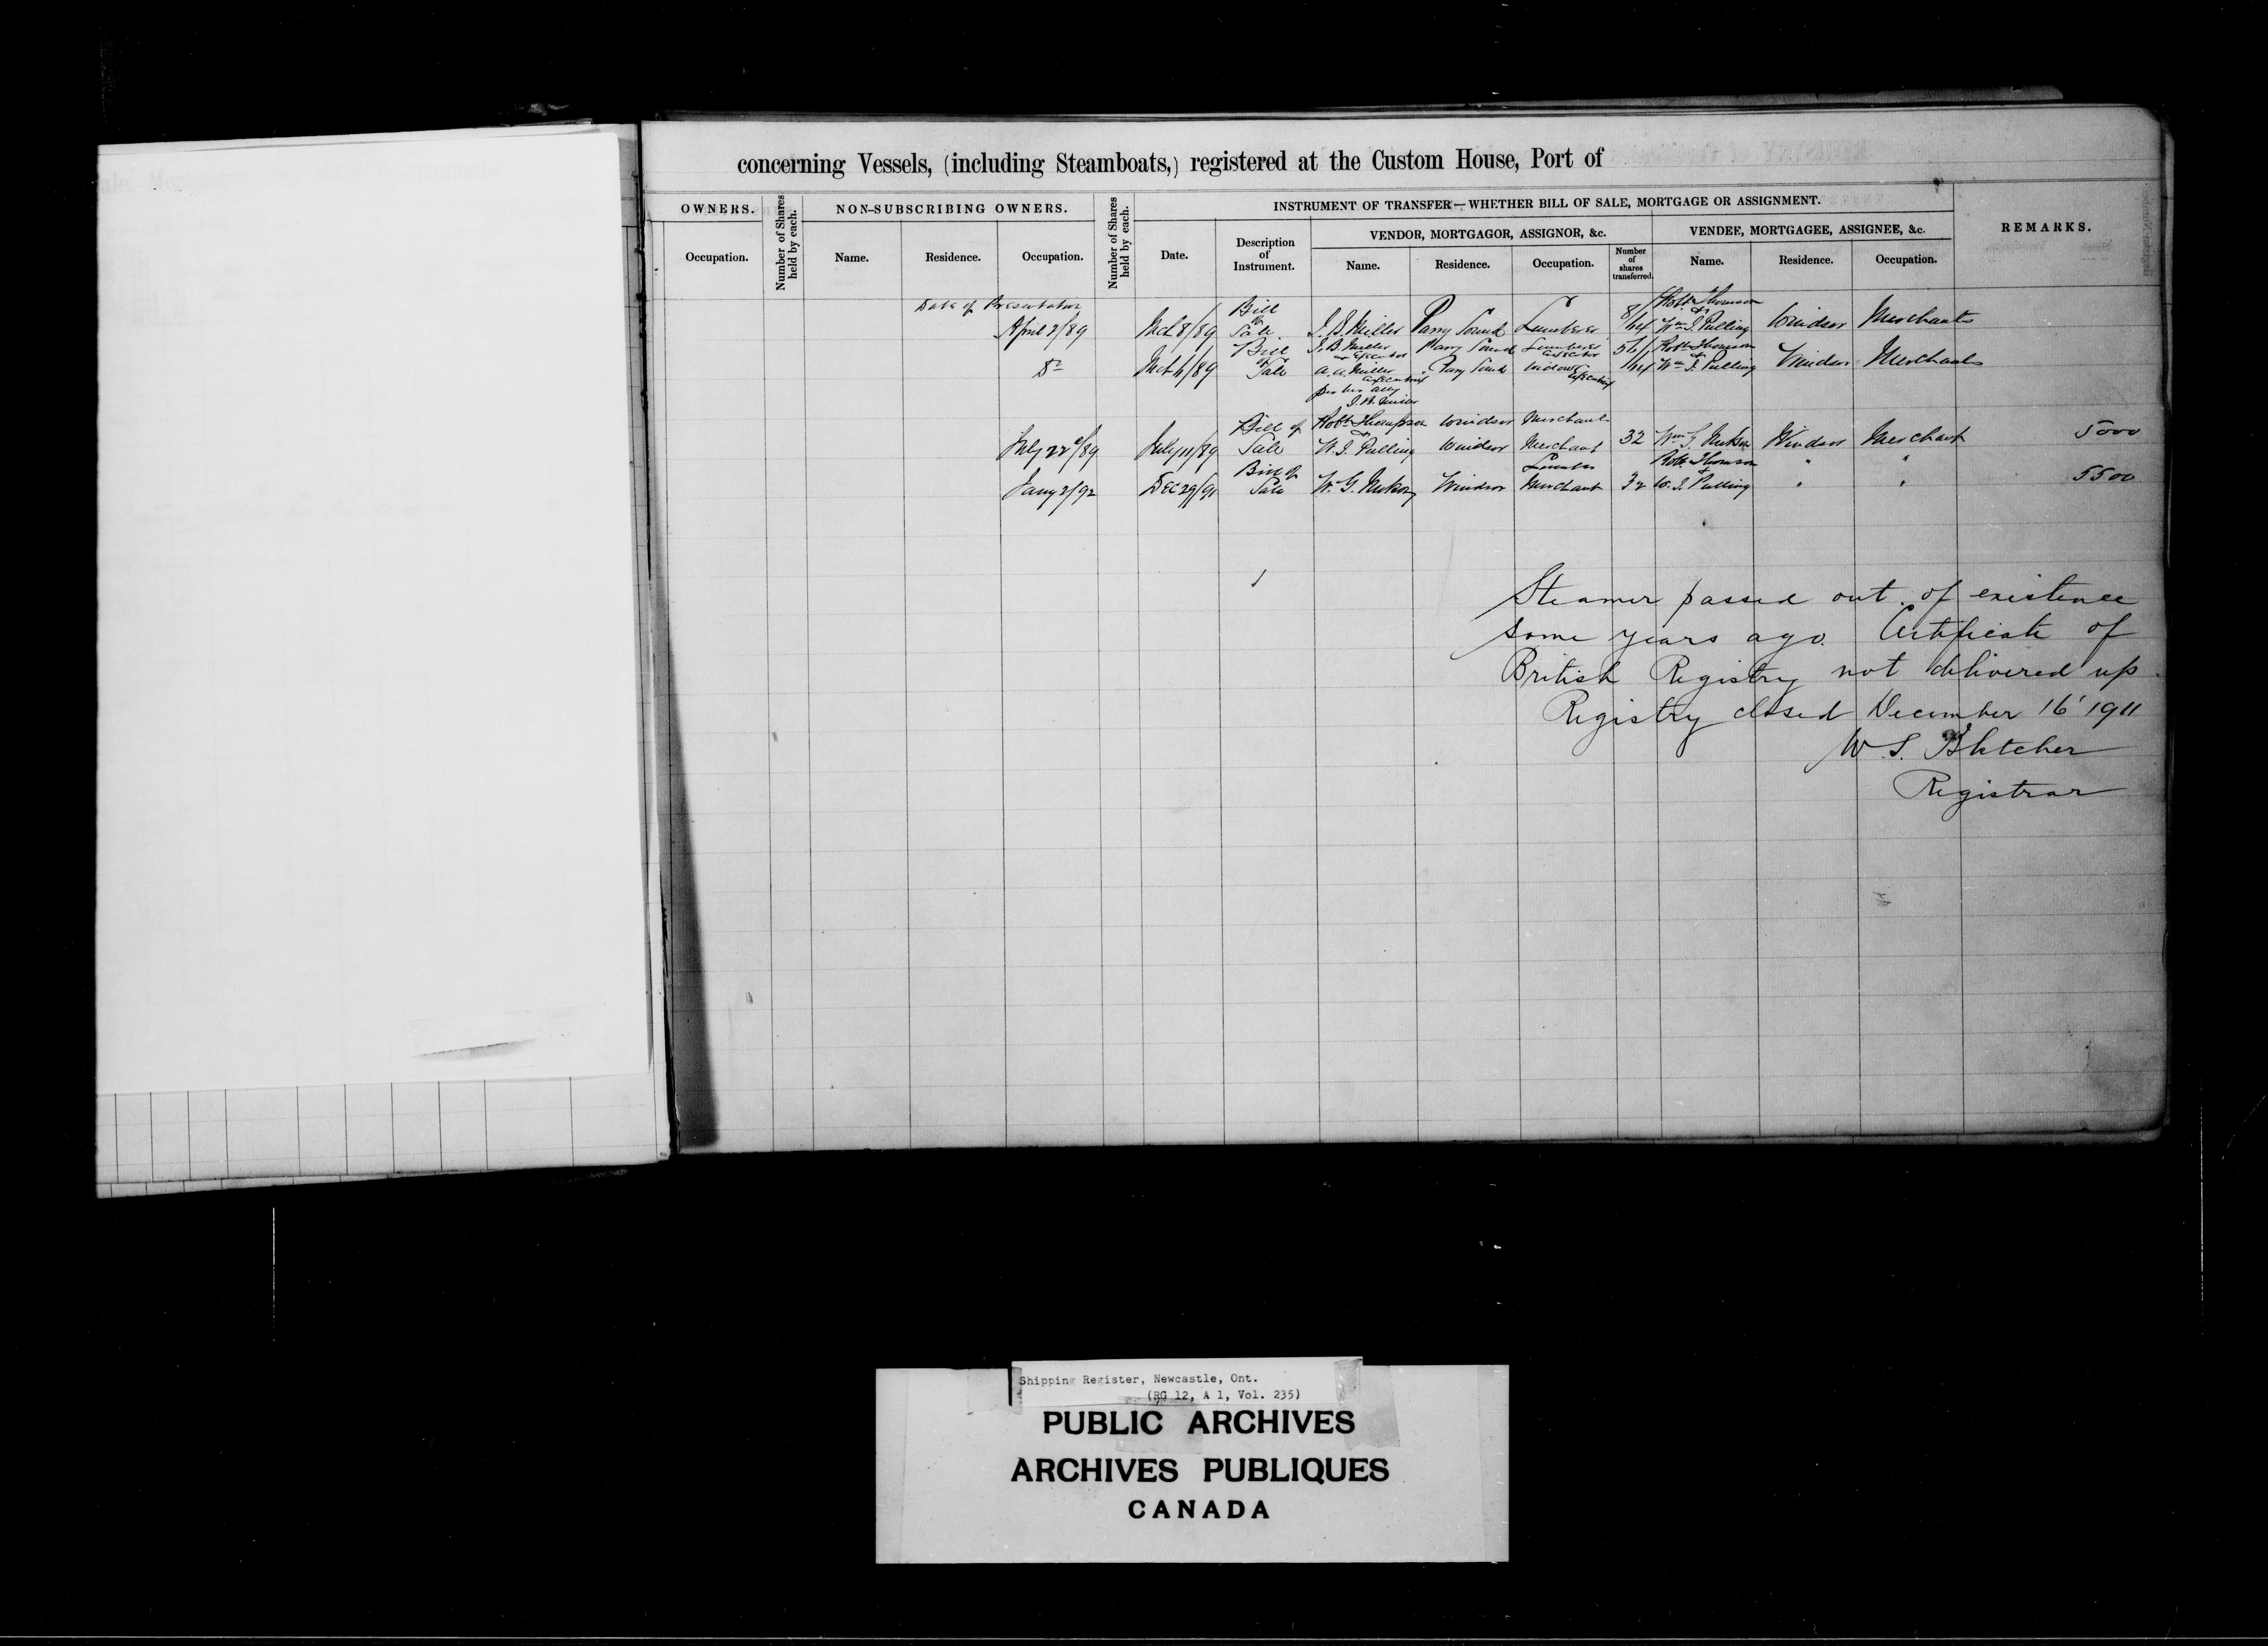 concerning Vessels, (including Steamboats,) registered at the Custom House, Port of
OWNERS.
Number of Shares held by each.
NON-SUBSCRIBING OWNERS.
Number of Shares held by each.
INSTRUMENT OF TRANSFER—WHETHER BILL OF SALE, MORTGAGE OR ASSIGNMENT.
REMARKS.
VENDOR, MORTGAGOR, ASSIGNOR, &c.
VENDEE, MORTGAGEE, ASSIGNEE, &c.
Occupation.
Name.
Residence.
Occupation.
Date.
Description of Instrument.
Name.
Residence.
Occupation.
Number of shares transferred.
Name.
Residence.
Occupation.
Date of Presentation
Bill of Robt Thomson &
April 2/89 Mch 8/89 Sale J. B. Miller Parry Sound Lumberer 8/64 Wm J. Pulling Windsor Merchants
Bill of J. B. Miller Parry Sound Lumberer 56/64 Robt Thomson &
Do Sale A. A. Miller Parry Sound Widow Executrix Wm J. Pulling Windsor Merchants
per her atty
J. B. Miller
Bill of Robt Thompson & Windsor Merchant
July 22d/89 July 11/89 Sale W. J. Pulling Windsor Merchant 32 Windsor Merchant 5000
Bill of Lumber Robt Thomson &
Jany 2/92 Dec 29/91 Sale Windsor Merchant 32 W. J. Pulling " " 5500
Steamer passed out of existence
some years ago. Certificate of
British Registry not delivered up.
Registry closed December 16' 1911
W. S.
Registrar
Shipping Register, Newcastle, Ont.
(RG 12, A 1, Vol. 235)
PUBLIC ARCHIVES
ARCHIVES PUBLIQUES
CANADA